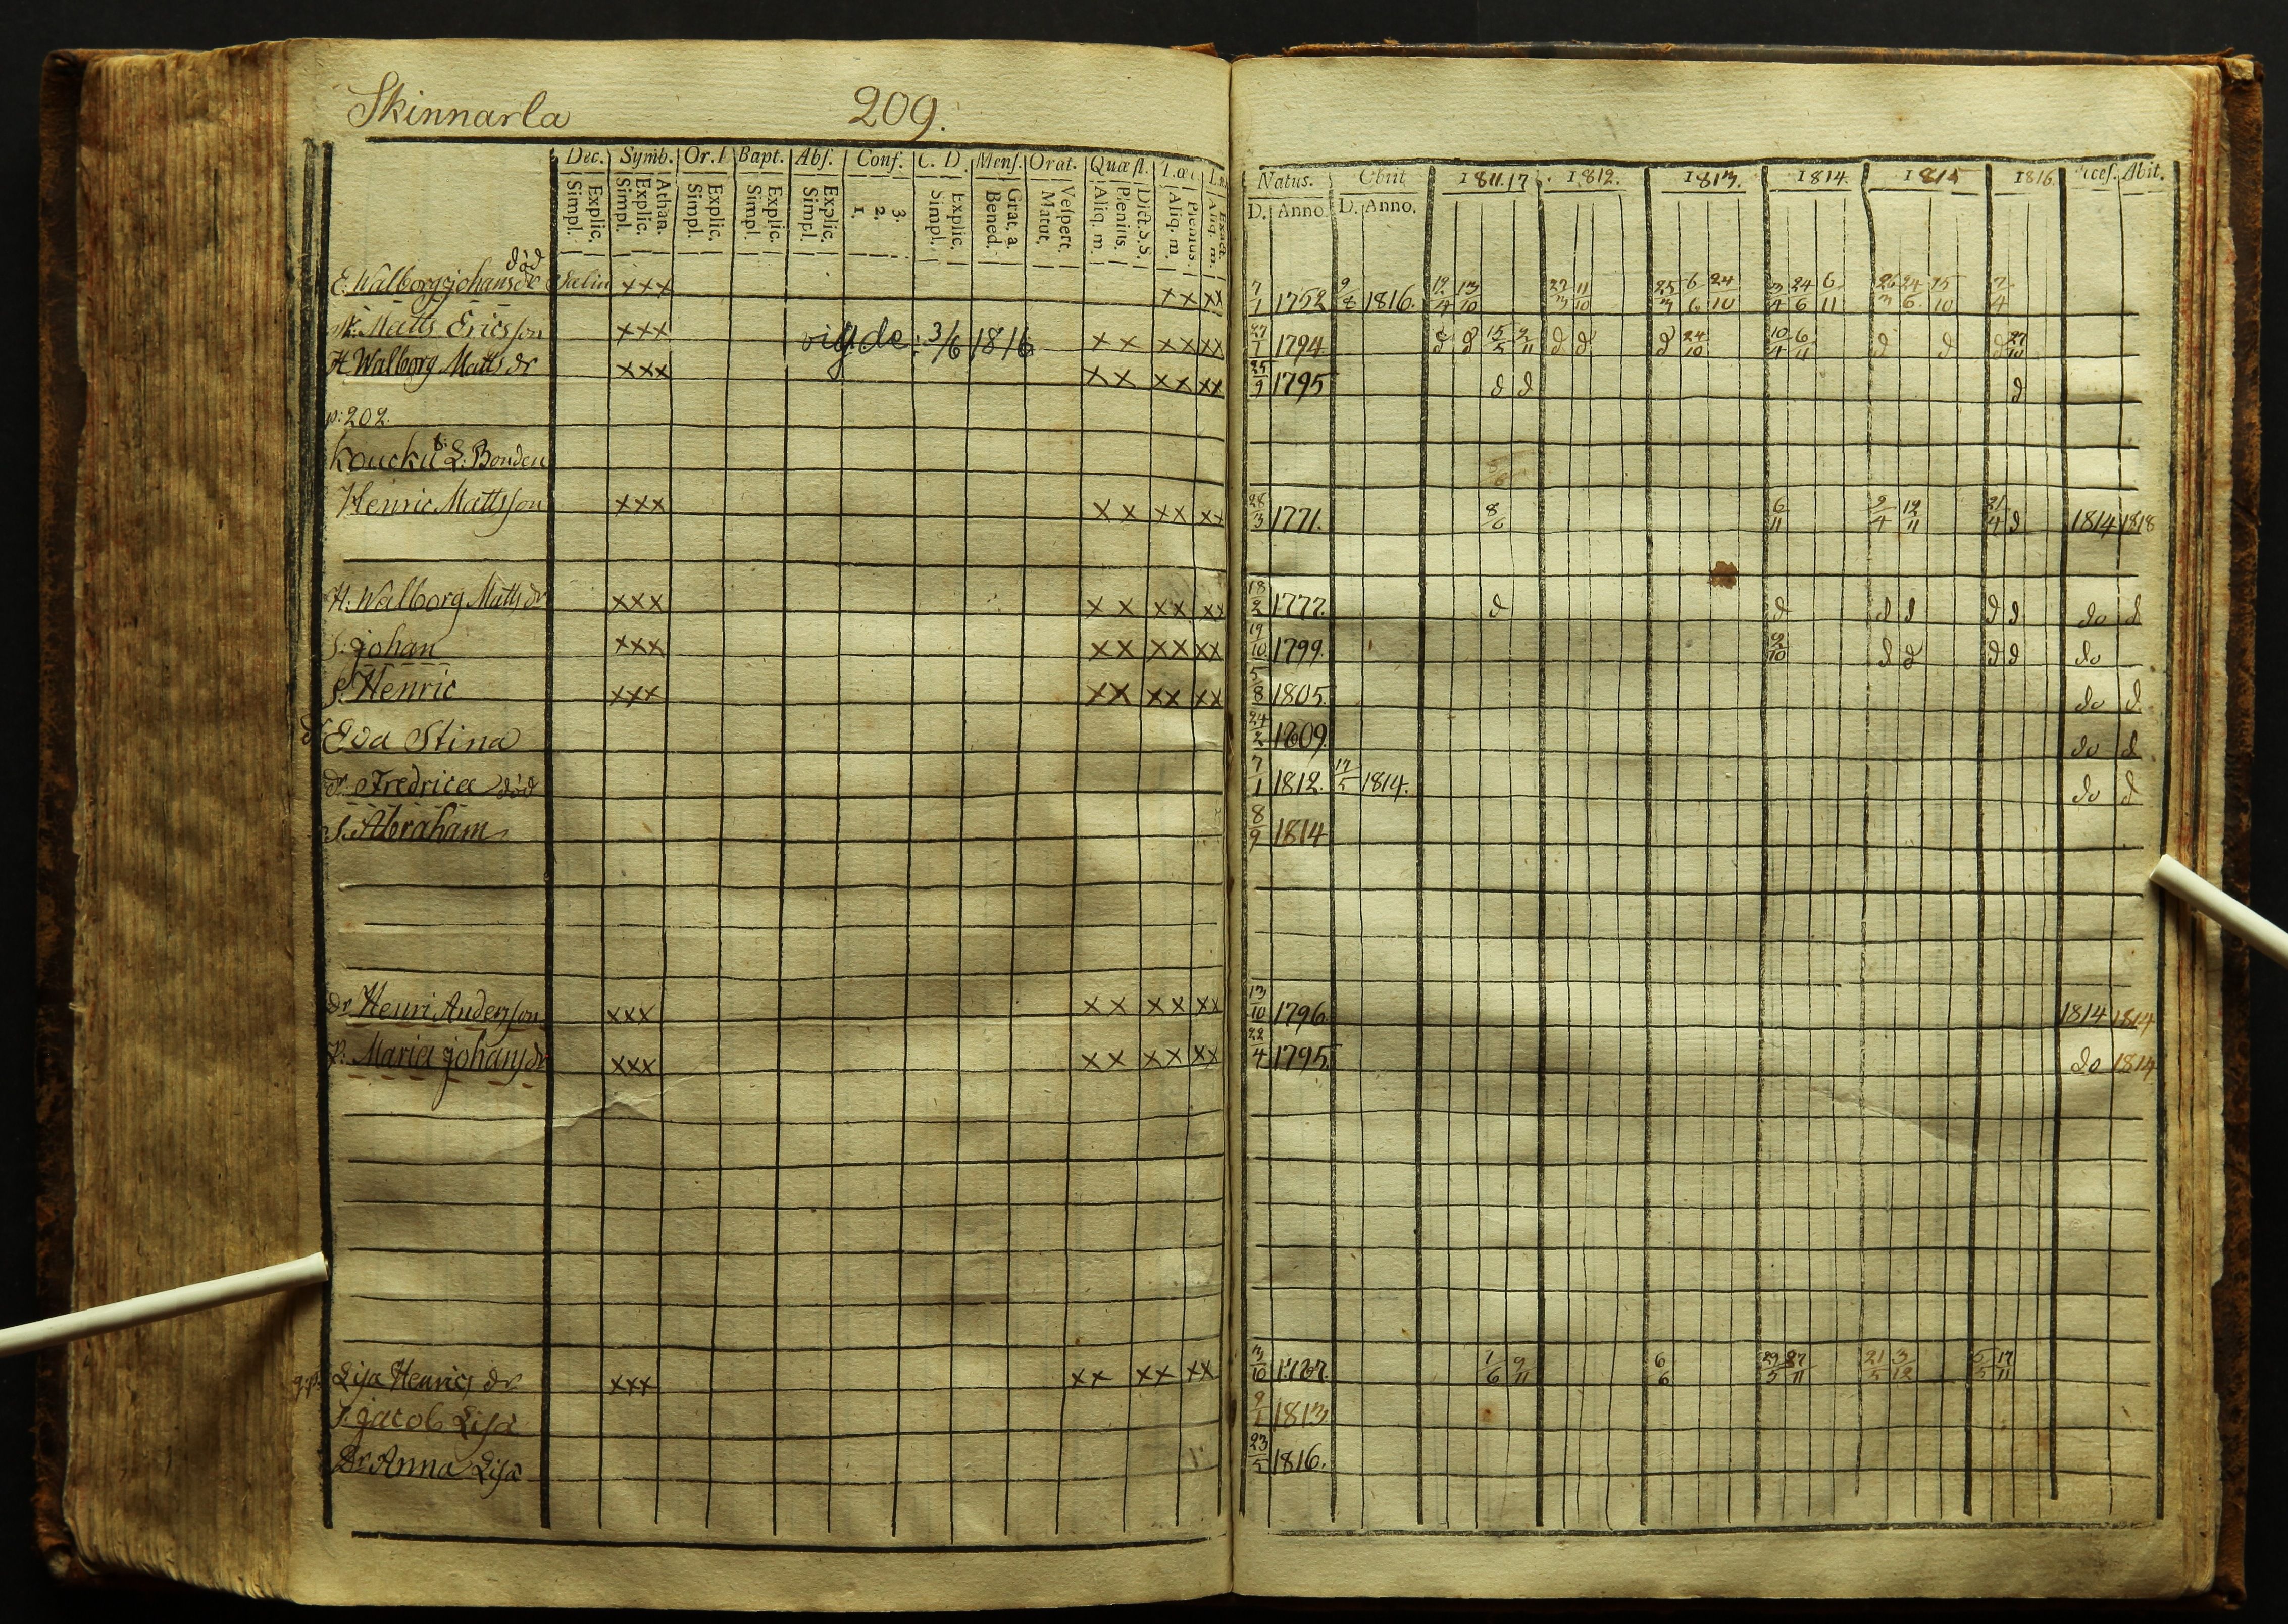 Skinnarla 209.
Dec. Symb. Or. Bapt. Abs. Conf. C. D. Mens. Orat. Quæst. Natus. Obiit 1811.17. 1812. 1813. 1814. 1815 1816 Abit.
Explic. Simpl. Athan. Explic. Simpl. Explic. Simpl. Explic. Simpl. Explic. Simpl. 3. 2. 1. Explic. Simpl. Grat. a. Bened. Vespert. Matut. Dict. S.S. Plenius. Aliq. m. Plenius. Aliq. m. Exact. Aliq. m. D. Anno D. Anno.
död
E. Walborg johansdr xxx xx xx 7/1 1752 9/8 1816. 12/4 13/10 22/3 11/10 25/3 6/6 24/10 3/4 24/6 6/11 26/3 24/6 15/10 7/4
M. Matts Ericsson xxx vigde: 3/6 1816 xx xx xx 27/1 1794 d d 15/5 9/11 d d d 24/10 10/4 6/11 d d d 27/10
H Walborg Matts dr xxx xx xx xx 25/9 1795 d d d
p: 202.
Koucku L: Bonden
Henric Mattsson xxx xx xx xx 28/3 1771. 8/6 6/11 2/4 12/11 21/4 d 1814 1818
H: Walborg Matts dr xxx xx xx xx 18/2 1777. d d d d d d do d
S. johan xxx xx xx xx 19/10 1799. 9/10 d d d d do
S. Henric xxx xx xx xx 5/8 1805. do d.
d. Eva Stina 24/2 1809. do d
dr. Fredrica död 7/1 1812. 17/5 1814. do d
S. Abraham 8/9 1814
dr Henri Andersson xxx xx xx xx 13/10 1796. 1814 1814
P. Maria johans dr xxx xx xx xx 22/4 1795. do 1814
Lisa Henrics dr xxx xx xx xx 3/10 1787. 1/6 9/11 6/6 29/5 27/11 21/5 3/12 5/5 17/11
S. jacob Lisa 9/1 1813
Dr Anna Lisa 23/5 1816.